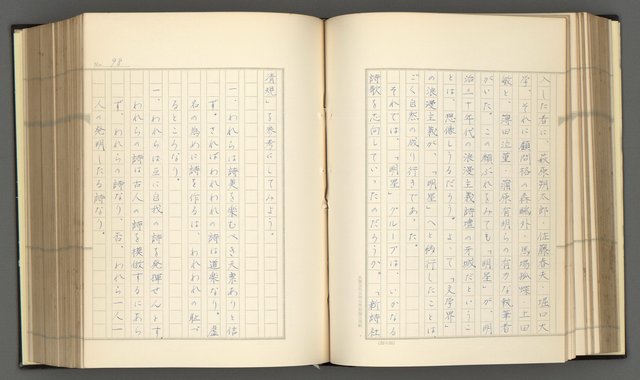 入した者に、萩原朔太郎・佐藤春夫・堀口大
学、それに顧問格の森鷗外・馬場孤蝶・上田
敏と、薄田泣菫・蒲原有明らの有力な執筆者
がいた。この顔ぶれをみても「明星」が、明
治三十年代の浪漫主義詩壇の牙城だというこ
とは、想像しうるだろう。よって「文学界」
の浪漫主義が、「明星」へと移行したことは、
ごく自然の成り行きであった。
それでは、「明星」グループは、いかなる
詩歌を志向していったのだろうか。「新詩社
清規」を参考にしてみよう。
一、われらは詩美を楽むべき天稟ありと信
ず。さればわれわれの詩は道楽なり。虚
名の為めに詩を作るは、われわれの恥づ
るところなり。
一、われらは互に自我の詩を発揮せんとす。
われらの詩は古人の詩を模倣するにあら
ず、われらの詩なり。否、われら一人一
人の発明したる詩なり。
No. 98